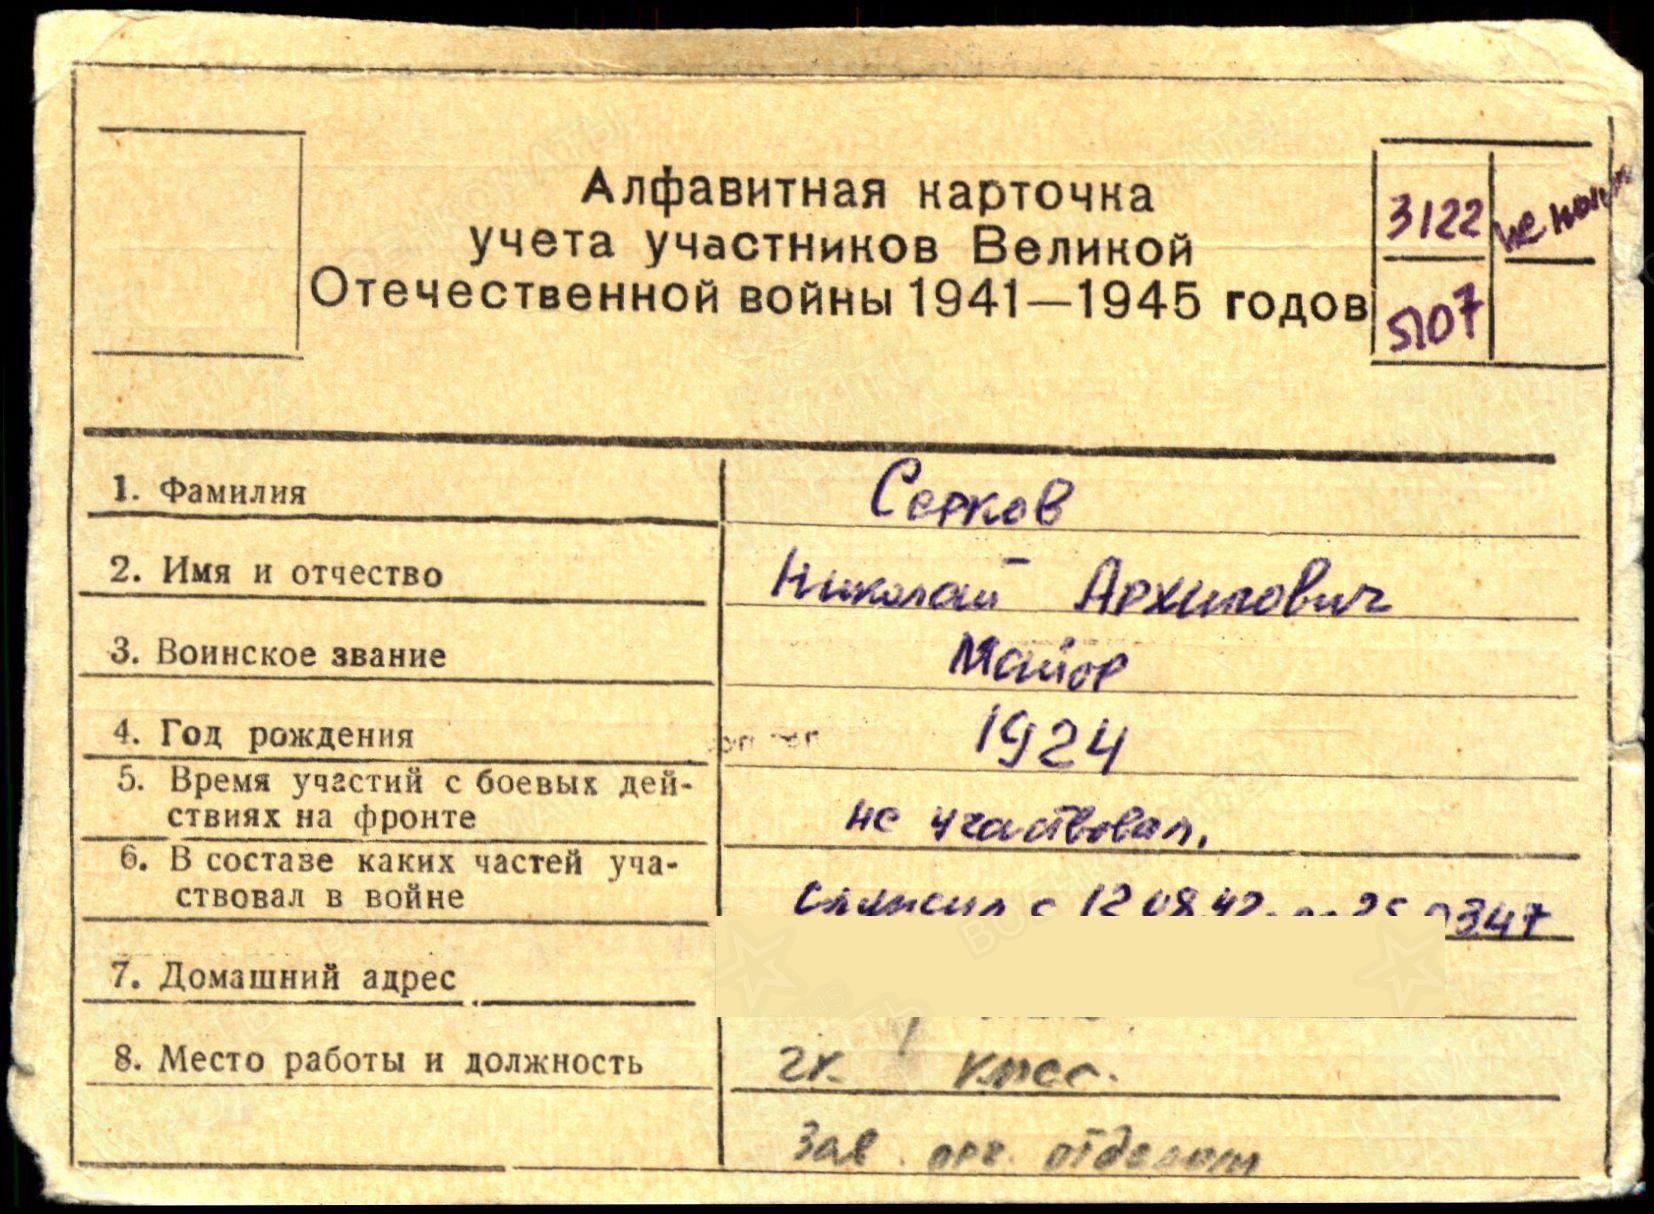 Алфавитная карточка
учета участников Великой
Отечественной войны 1941—1945 годов
3122
не
5107
1. Фамилия
Серков
2. Имя и отчество
Николай Архипович
3. Воинское звание
Майор
4. Год рождения
1924
5. Время участий с боевых дей-
ствиях на фронте
не участвовал.
6. В составе каких частей уча-
ствовал в войне
служил с 12.08.42
7. Домашний адрес
8. Место работы и должность
зав. орг. отделом